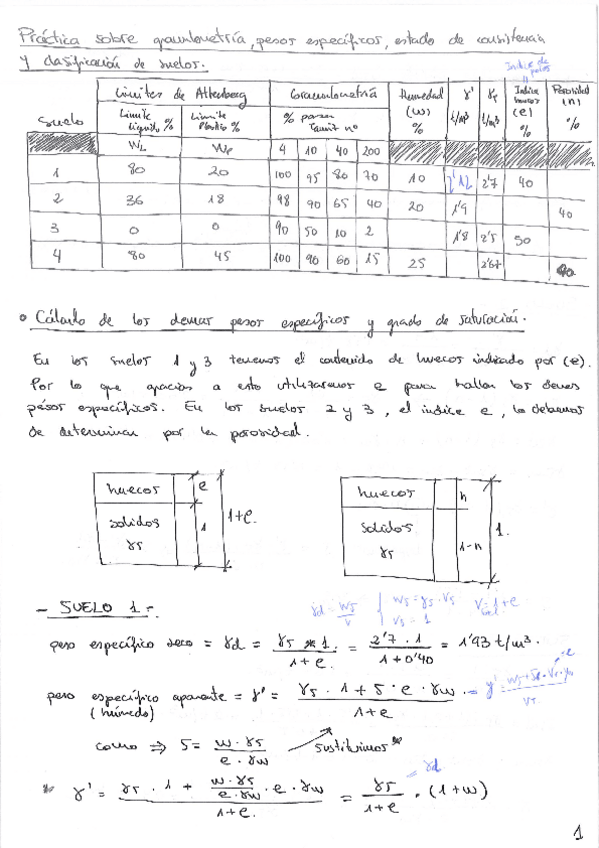 Práctica sobre granulometría, pesos específicos, estado de consistencia
y clasificación de suelos.
Indice de poros
Suelo | Límites de Attenberg | Granulometría | Humedad (w) % | γ' t/m³ | γs t/m³ | Indice huecos (e) % | Porosidad (n) %
Límite líquido % | Límite Plástico % | % pasa Tamiz nº
WL | WP | 4 | 10 | 40 | 200
1 | 80 | 20 | 100 | 95 | 80 | 70 | 10 | 2'12 | 2'7 | 40
2 | 36 | 18 | 98 | 90 | 65 | 40 | 20 | 1'9 | | | 40
3 | 0 | 0 | 90 | 50 | 10 | 2 | | 1'8 | 2'5 | 50
4 | 80 | 45 | 100 | 90 | 60 | 15 | 25 | | 2'67 | | 40
• Cálculo de los demas pesos específicos y grado de saturación.
En los suelos 1 y 3 tenemos el contenido de huecos indicado por (e).
Por lo que gracias a esto utilizaremos e para hallar los demas
pesos específicos. En los suelos 2 y 3, el indice e, lo debemos
de determinar por la porosidad.
huecos e
solidos γs 1
1+e.
huecos n
solidos γs 1-n
1.
- SUELO 1.-
γd = Ws/V { Ws = γs · Vs
Vs = 1
V = 1+e
peso específico seco = γd = γs · 1 / 1+e = 2'7 · 1 / 1+0'40 = 1'93 t/m³.
peso específico aparente = γ' = γs · 1 + S · e · γw / 1+e
(húmedo)
como ⇒ S = w · γs / e · γw sustituimos *
* γ' = γs · 1 + (w · γs / e · γw) · e · γw / 1+e. = γs / 1+e · (1+w)
= γd
1